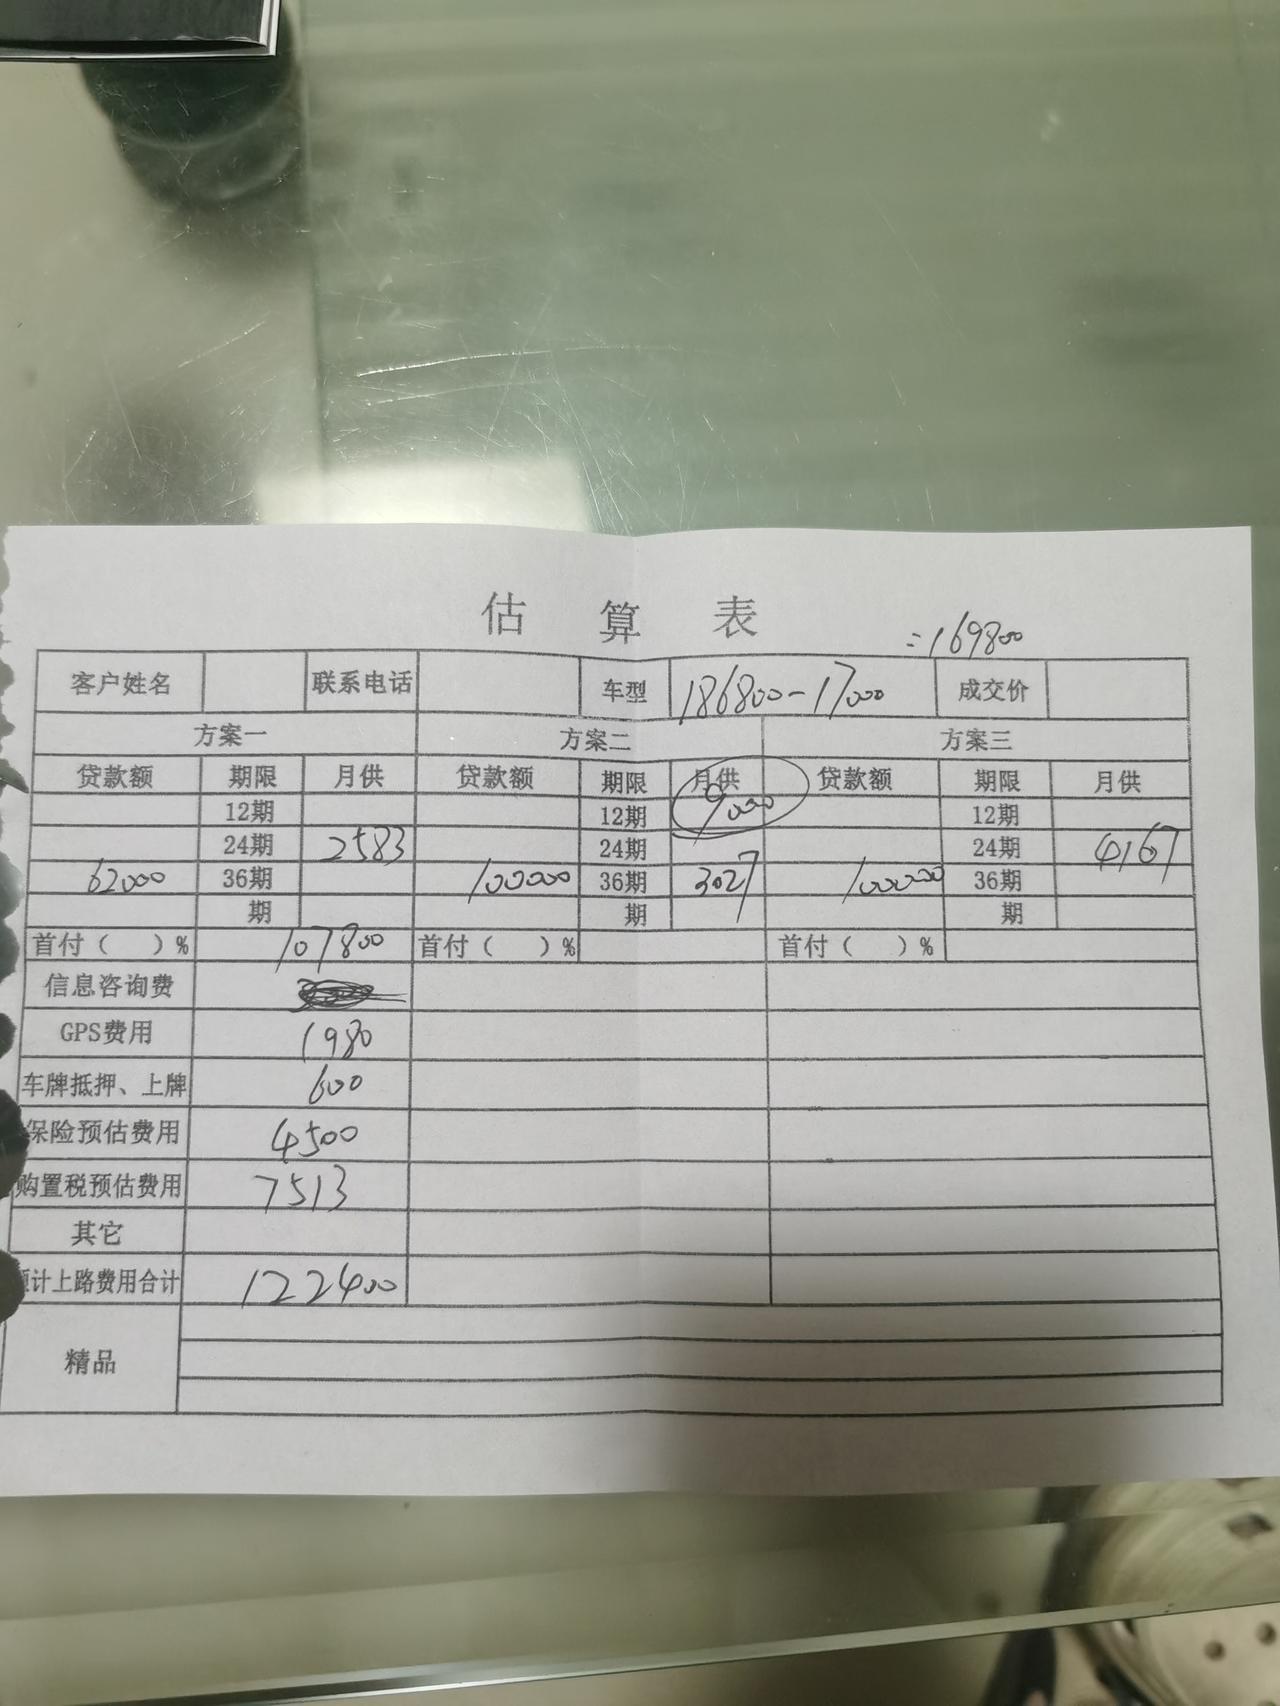 估算表
=169800
客户姓名 联系电话 车型 186800-17000 成交价
方案一 方案二 方案三
贷款额 期限 月供 贷款额 期限 月供 贷款额 期限 月供
12期 12期 9000 12期
24期 2583 24期 24期 4167
62000 36期 100000 36期 3027 100000 36期
期 期 期
首付（ ）% 107800 首付（ ）% 首付（ ）%
信息咨询费
GPS费用 1980
车牌抵押、上牌 600
保险预估费用 4500
购置税预估费用 7513
其它
预计上路费用合计 122400
精品